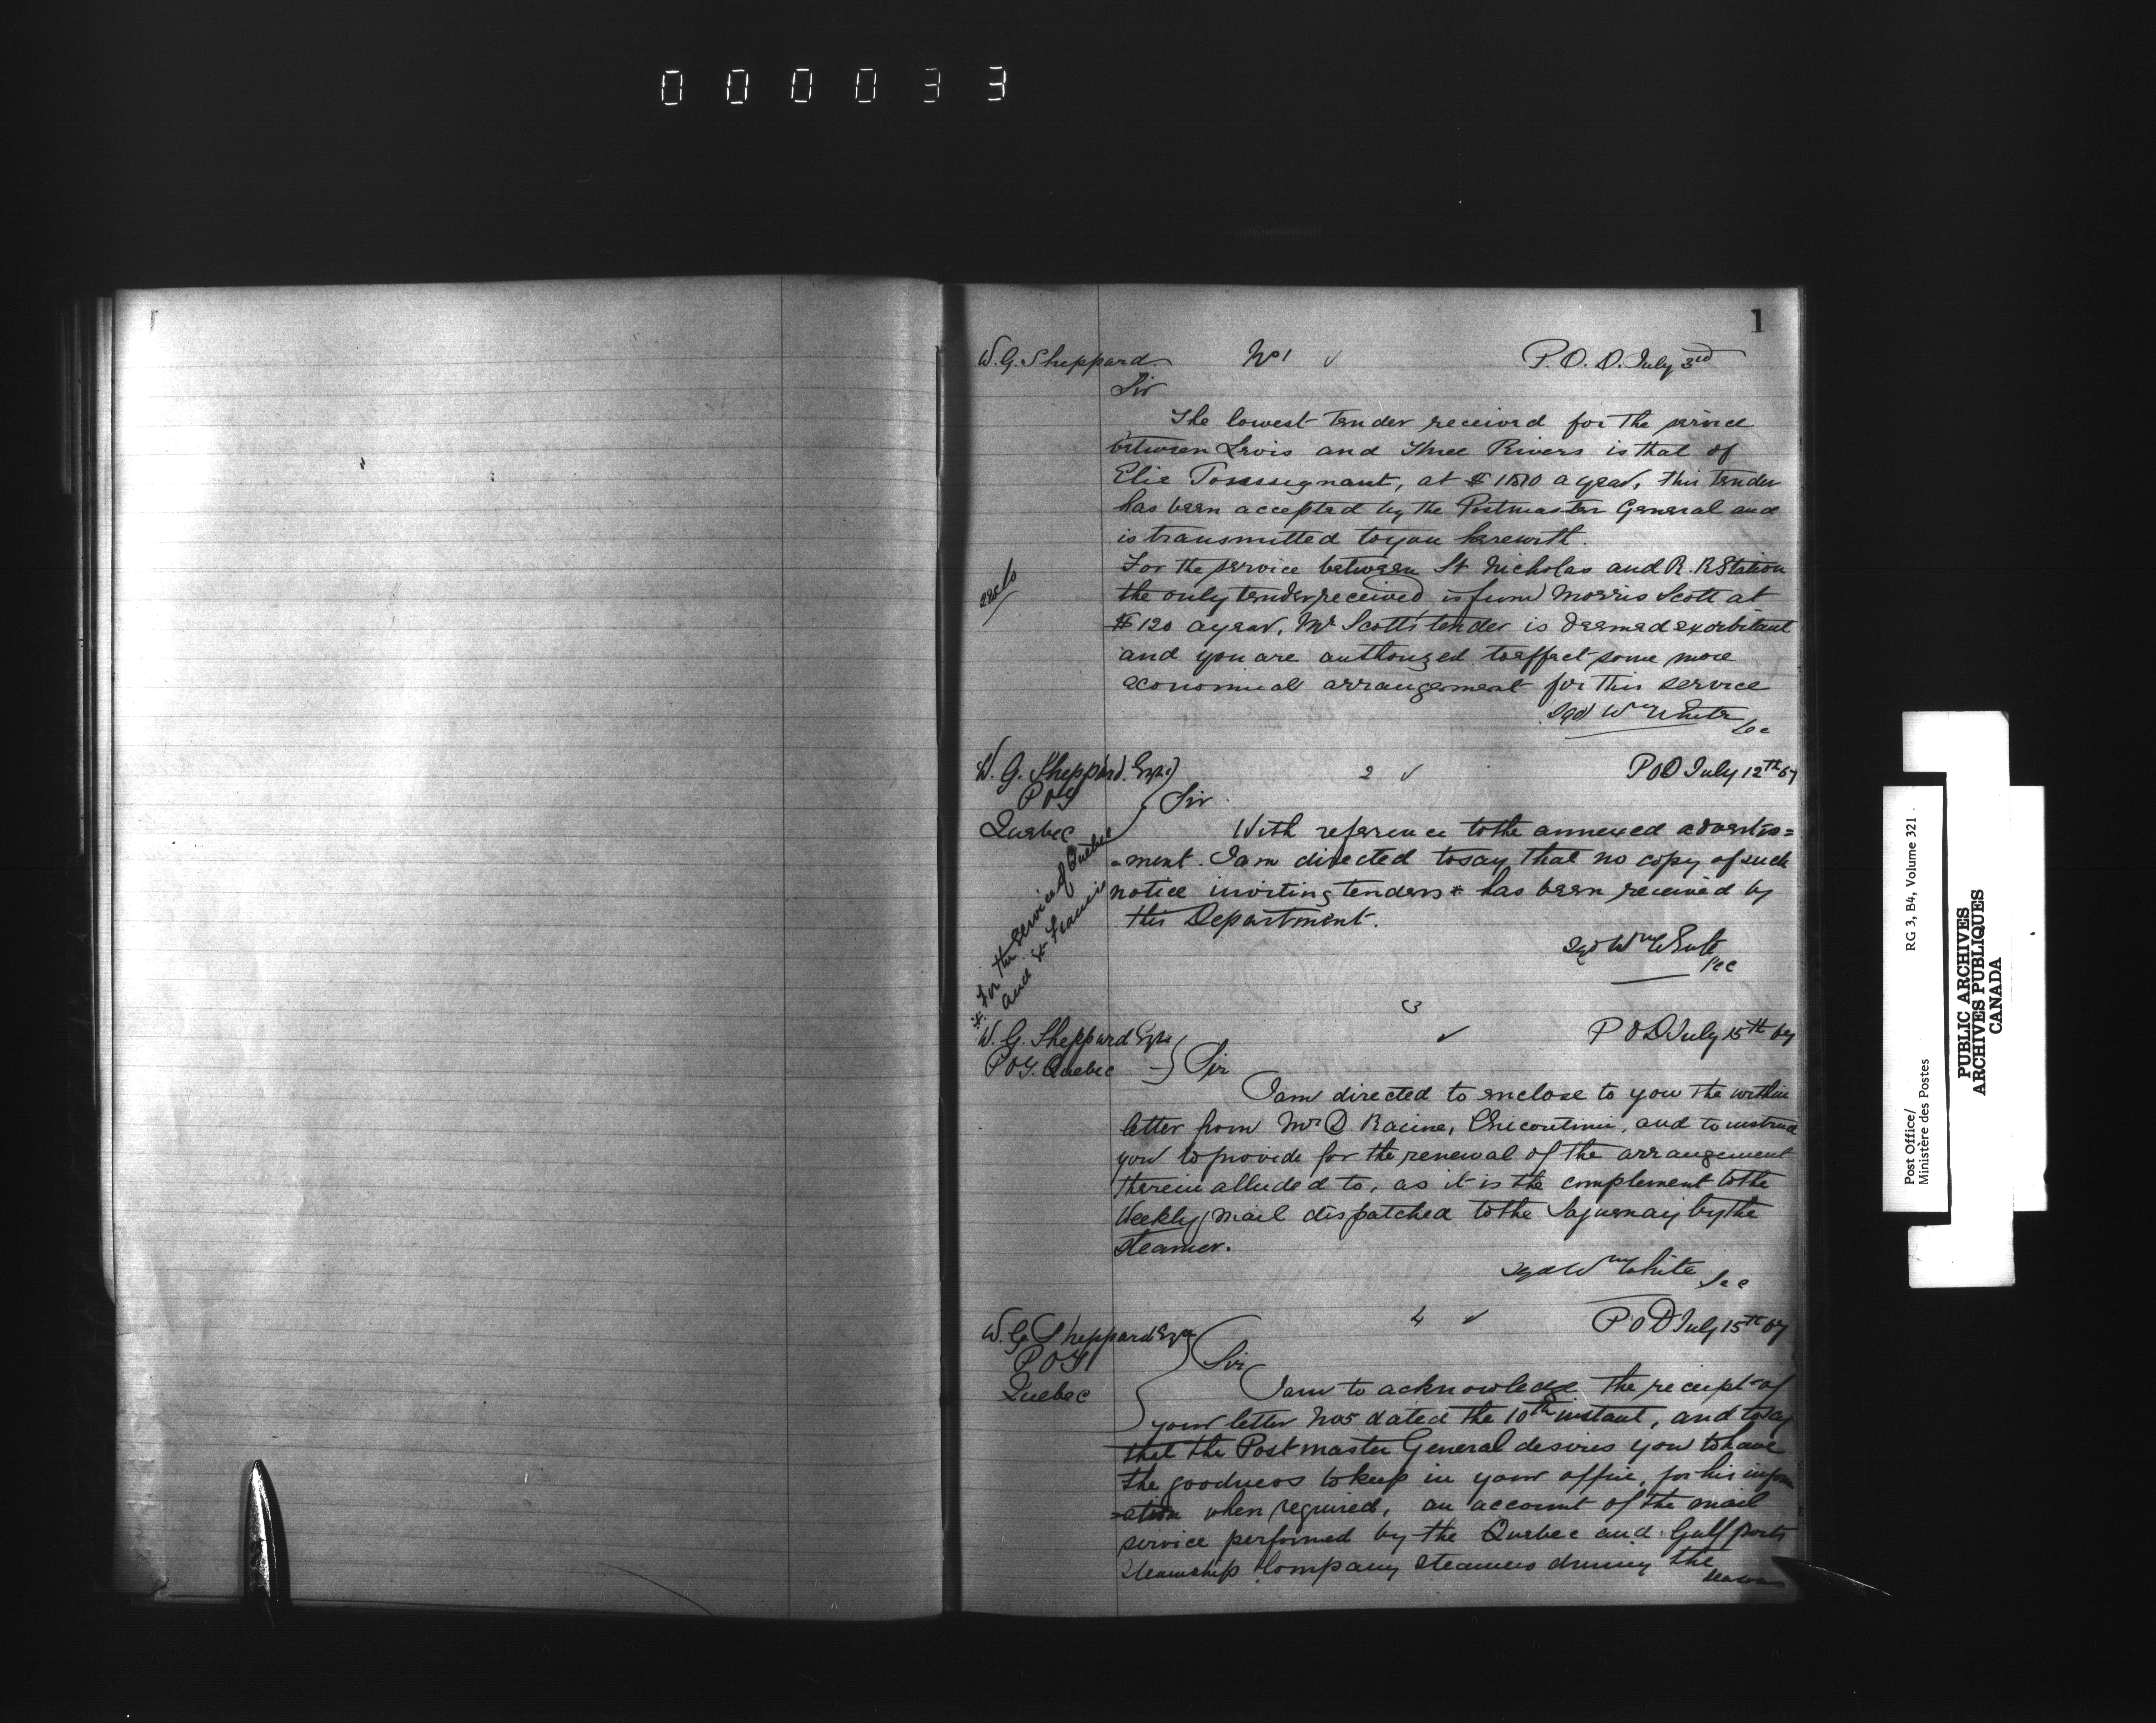 000033
1
W. G. Sheppard No 1 P. O. D. July 3rd
Sir
The lowest tender received for the service
between Levis and Three Rivers is that of
Elie Toussignant, at $ a year, this tender
has been accepted by the Postmaster General and
is transmitted to you herewith.
For the service between St Nicholas and R. R Station
the only tender received is from Morris Scott at
$120 a year. Mr Scott's tender is deemed exorbitant
and you are authorized to effect some more
economical arrangement for this service
Sgd Wm White
Sec
W. G. Sheppard. Esqre 2 P O D July 12th 67
P O I
Quebec
Sir
With reference to the annexed advertis=
=ment. I am directed to say that no copy of such
notice inviting tenders * has been received by
this Department.
* For the service of Quebec
and St Francis
Sgd Wm White
Sec
3
W. G. Sheppard Esqre P O D July 15th 67
P O I. Quebec Sir
I am directed to enclose to you the within
letter from Mr D. Racine, Chicoutimi, and to instruct
you to provide for the renewal of the arrangement
therein alluded to, as it is the complement to the
Weekly Mail dispatched to the Saguenay by the
Steamer.
Sgd Wm White
Sec
4 P O D July 15th 67
W. G. Sheppard Esqre
P O I
Quebec
Sir
I am to acknowledge the receipt of
your letter No 5 dated the 10th instant, and to say
that the Postmaster General desires you to have
the goodness to keep in your office, for his inform
=ation when required, an account of the mail
service performed by the Quebec and Gulf ports
Steamship Company Steamers during the
season
Post Office/
Ministère des Postes
RG 3, B4, Volume 321
PUBLIC ARCHIVES
ARCHIVES PUBLIQUES
CANADA